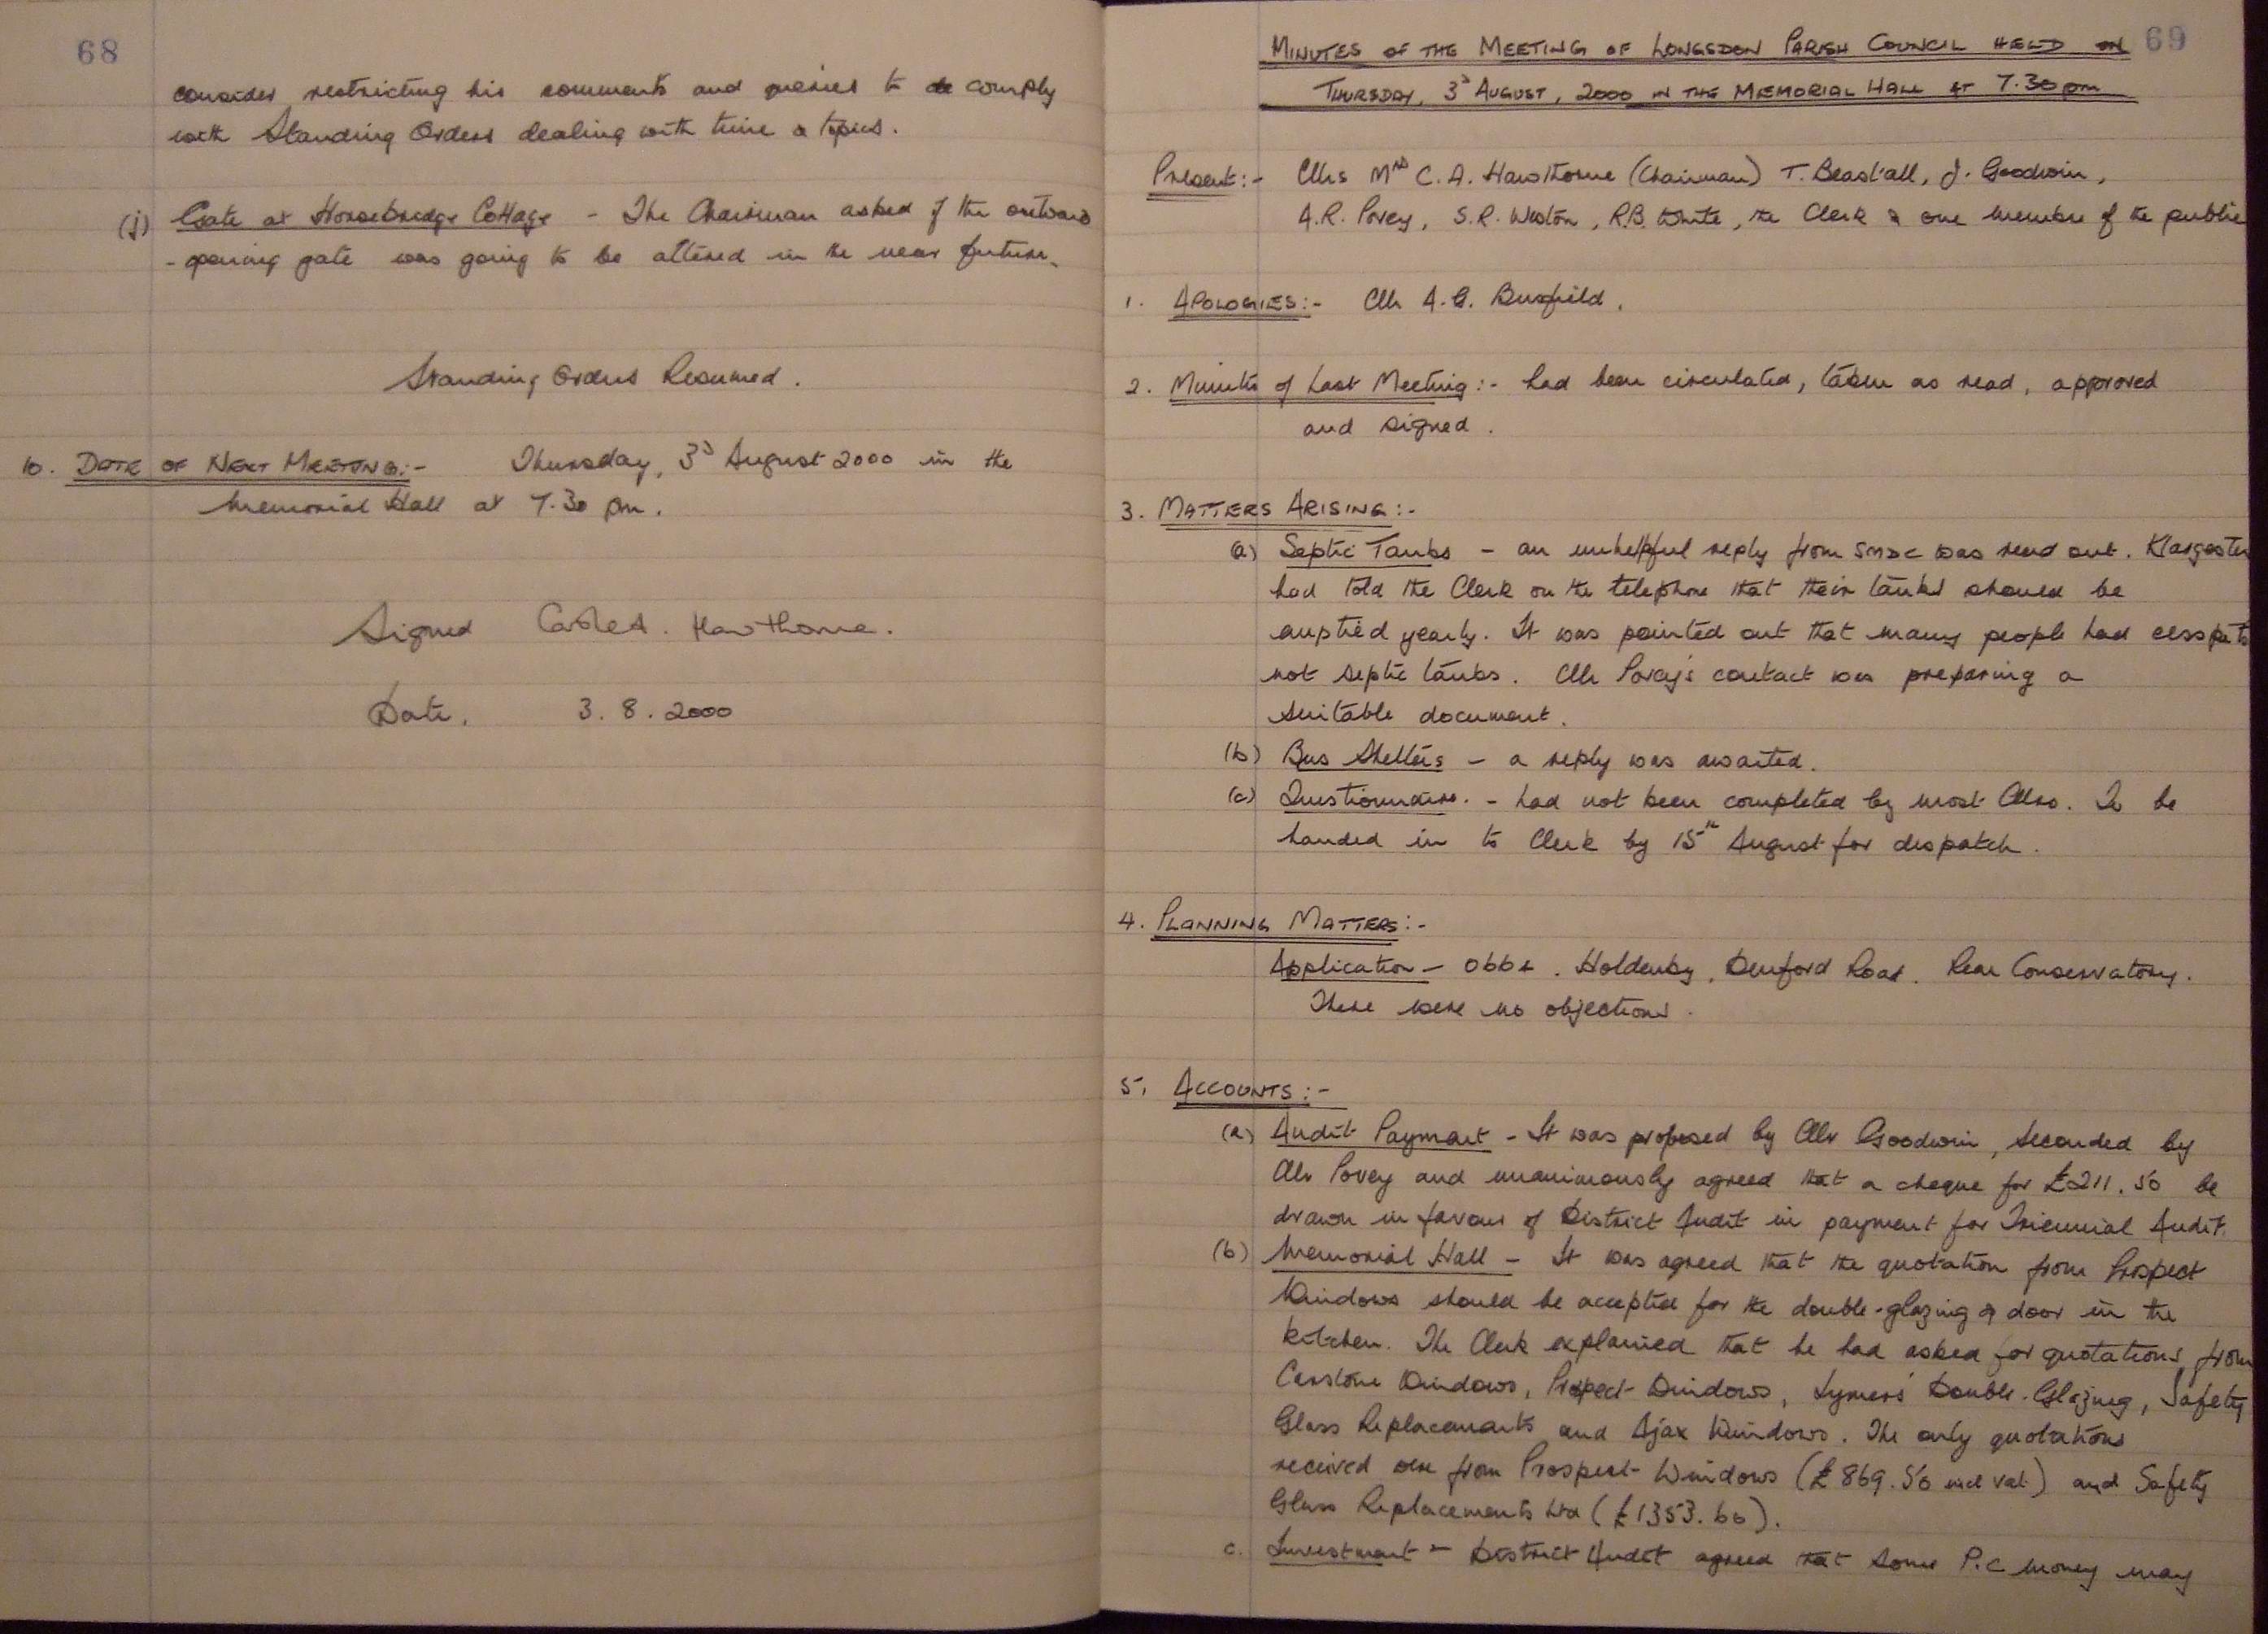 68
consider restricting his comments and queries to comply
with Standing Orders dealing with time & topics.
(j) Gate at Horsebridge Cottage - The Chairman asked if the outward
-opening gate was going to be altered in the near future.
Standing Orders Resumed.
10. DATE OF NEXT MEETING:- Thursday, 3d August 2000 in the
Memorial Hall at 7.30 pm.
Signed Hawthorne.
Date. 3.8.2000
69
MINUTES OF THE MEETING OF LONGSDON PARISH COUNCIL HELD ON
THURSDAY, 3d AUGUST, 2000 IN THE MEMORIAL HALL AT 7.30pm
Present:- Cllrs Mrs C.A. Hawthorne (Chairman) T. Beastall, J. Goodwin,
A.R. Povey, S.R. Weston, R.B. White, the Clerk & one member of the public
1. APOLOGIES:- Cllr A.G. Busfield.
2. Minutes of Last Meeting:- had been circulated, taken as read, approved
and signed.
3. MATTERS ARISING:-
(a) Septic Tanks - an unhelpful reply from SMDC was read out. Klargester
had told the Clerk on the telephone that their tanks should be
emptied yearly. It was pointed out that many people had cesspits
not septic tanks. Cllr Povey's contact was preparing a
suitable document.
(b) Bus Shelters - a reply was awaited.
(c) Questionnaire. - had not been completed by most Cllrs. To be
handed in to Clerk by 15th August for dispatch.
4. PLANNING MATTERS:-
Application - Holdenby, Denford Road. Rear Conservatory.
There were no objections.
5. ACCOUNTS:-
(a) Audit Payment - It was proposed by Cllr Goodwin, seconded by
Cllr Povey and unanimously agreed that a cheque for £211.50 be
drawn in favour of District Audit in payment for Triennial Audit.
(b) Memorial Hall - It was agreed that the quotation from Prospect
Windows should be accepted for the double-glazing & door in the
kitchen. The Clerk explained that he had asked for quotations from
Windows, Prospect Windows, Lymers' Double-Glazing, Safety
Glass Replacements and Ajax Windows. The only quotations
received were from Prospect Windows (£869.50 incl vat) and Safety
Glass Replacements Ltd (£1353.60).
c. Investment - District Audit agreed that some P.C money may